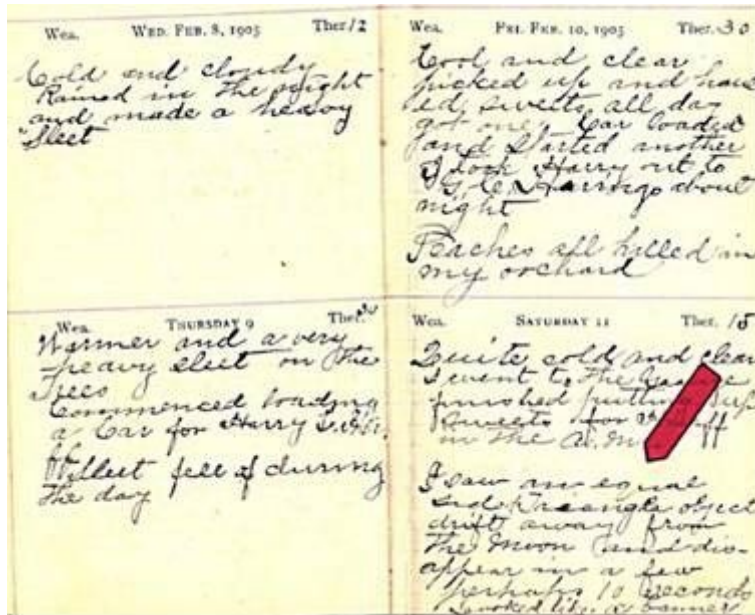 Wea. WED. FEB. 8, 1905 Ther. 12
Cold and cloudy
Rained in the night
and made a heavy
sleet
Wea. THURSDAY 9 Ther.
Warmer and a very
heavy sleet on the
trees
Commenced loading
a Car for Harry
Sleet fell off during
the day
Wea. FRI. FEB. 10, 1905 Ther. 30
Cool and clear
picked up and haul
ed sweets all day
got one Car loaded
and Started another
I took Harry out to
about
night
Peaches all killed in
my orchard
Wea. SATURDAY 11 Ther. 15
Quite cold and clear
I went to the
finished putting up
Sweets for
in the A.M.
I saw an equal
sided Triangle object
drift away from
the Moon and dis-
appear in a few
perhaps 10 seconds
Looked like a